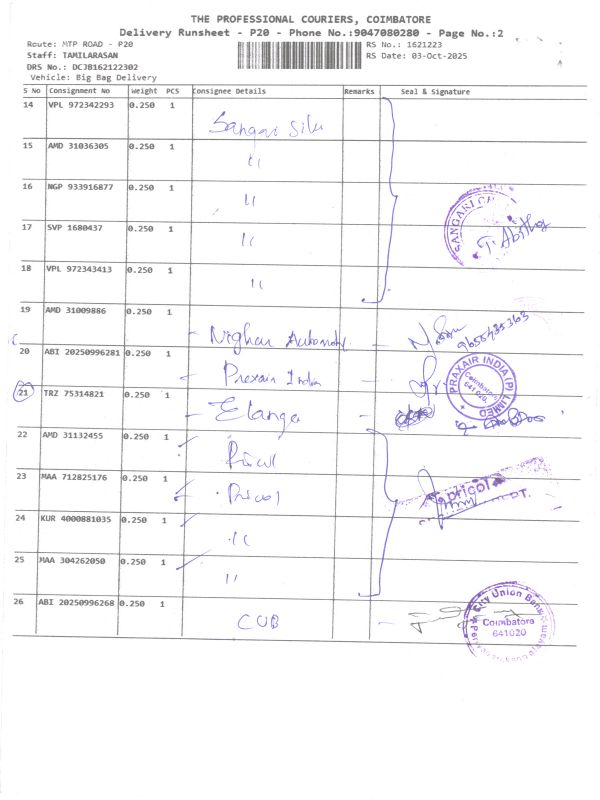 THE PROFESSIONAL COURIERS, COIMBATORE
Delivery Runsheet - P20 - Phone No.:9047080280 - Page No.:2
Route: MTP ROAD - P20 RS No.: 1621223
Staff: TAMILARASAN RS Date: 03-Oct-2025
DRS No.: DCJB162122302
Vehicle: Big Bag Delivery
S No Consignment No Weight PCS Consignee Details Remarks Seal & Signature
14 VPL 972342293 0.250 1
Sangari Silk
15 AMD 31036305 0.250 1
"
16 NGP 933916877 0.250 1
"
17 SVP 1680437 0.250 1
"
SANGARI
T. Abitha
18 VPL 972343413 0.250 1
"
19 AMD 31009886 0.250 1
- Nighan 9655435363
20 ABI 20250996281 0.250 1
- Praxair India -
PRAXAIR INDIA (P) LIMITED
Coimbatore
641020.
21 TRZ 75314821 0.250 1
- Elango -
22 AMD 31132455 0.250 1
Pricol
23 MAA 712825176 0.250 1
Pricol
pricol
PT.
24 KUR 4000881035 0.250 1
"
25 MAA 304262050 0.250 1
"
26 ABI 20250996268 0.250 1
CUB -
City Union Bank
Coimbatore
641020